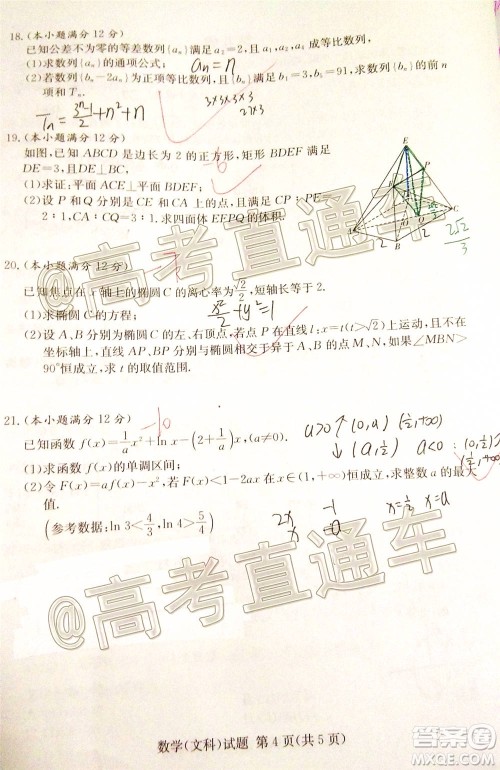 18.(本小题满分12分)
已知公差不为零的等差数列{aₙ}满足a₂=2,且a₁,a₂,a₄成等比数列.
(1)求数列{aₙ}的通项公式; aₙ=n
(2)若数列{bₙ-2aₙ}为正项等比数列,且满足b₁=3,b₅=91,求数列{bₙ}的前n
项和Tₙ.
3×3×3×3
27×3
Tₙ=(3ⁿ-1)/2+n²+n
19.(本小题满分12分)
如图,已知ABCD是边长为2的正方形,矩形BDEF满足
DE=3,且DE⊥AB;
(1)求证:平面ACE⊥平面BDEF;
2∶1,CA∶CQ=3∶1.求四面体EFPQ的体积.
2√2/3
20.(本小题满分12分)
已知焦点在x轴上的椭圆C的离心率为√2/2,短轴长等于2.
(1)求椭圆C的方程; x²/2+y²=1
(2)设A、B分别为椭圆C的左、右顶点,若点P在直线l:x=t(t>√2)上运动,且不在
坐标轴上,直线AP、BP分别与椭圆相交于异于A、B的点M、N,如果∠MBN>
90°恒成立,求t的取值范围.
21.(本小题满分12分) -10
已知函数f(x)=(1/a)x²+ln x-(2+1/a)x,(a≠0).
(1)求函数f(x)的单调区间;
(2)令F(x)=af(x)-x²,若F(x)<1-2ax在x∈(1,+∞)恒成立,求整数a的最大
值.
(参考数据:ln 3<4/3,ln 4>5/4)
x=1/2 x=a
2x -1
x -a
@高考直通车
@高考直通车
数学(文科)试题 第4页(共5页)